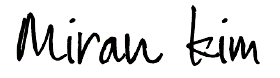 Miran Kim